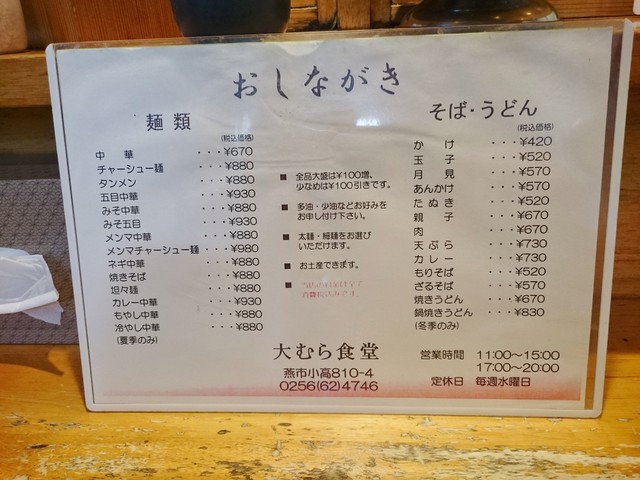 おしながき
麺類
(税込価格)
中華 ・・・¥670
チャーシュー麺 ・・・¥880
タンメン ・・・¥880
五目中華 ・・・¥930
みそ中華 ・・・¥880
みそ五目 ・・・¥930
メンマ中華 ・・・¥880
メンマチャーシュー麺 ・・・¥980
ネギ中華 ・・・¥880
焼きそば ・・・¥880
坦々麺 ・・・¥880
カレー中華 ・・・¥930
もやし中華 ・・・¥880
冷やし中華 ・・・¥880
(夏季のみ)
■ 全品大盛は¥100増、
少なめは¥100引きです。
■ 多油・少油などお好みを
お申し付け下さい。
■ 太麺・細麺をお選び
いただけます。
■ お土産できます。
■
そば・うどん
(税込価格)
かけ ・・・¥420
玉子 ・・・¥520
月見 ・・・¥570
あんかけ ・・・¥570
たぬき ・・・¥520
親子 ・・・¥670
肉 ・・・¥670
天ぷら ・・・¥730
カレー ・・・¥730
もりそば ・・・¥520
ざるそば ・・・¥570
焼きうどん ・・・¥670
鍋焼きうどん ・・・¥830
(冬季のみ)
大むら食堂
燕市小高810-4
0256(62)4746
営業時間 11:00〜15:00
17:00〜20:00
定休日 毎週水曜日